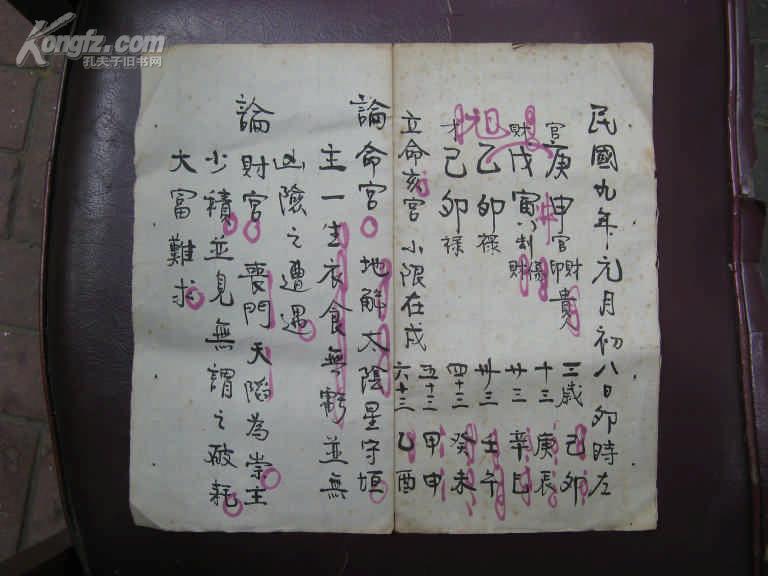 民國九年元月初八日卯時左
官庚申官印財貴
財戊寅刦傷財
祖乙卯祿
才己卯祿
立命亥宮 小限在戌
三歲 己卯
十三 庚辰
廿三 辛巳
卅三 壬午
四十三 癸未
五十三 甲申
六十三 乙酉
論命宮 地解太陰星守垣
主一生衣食無虧並無
凶險之遭遇
論財宮 喪門天陷為崇主
少積並見無謂之破耗
大富難求
Kongfz.com
孔夫子旧书网